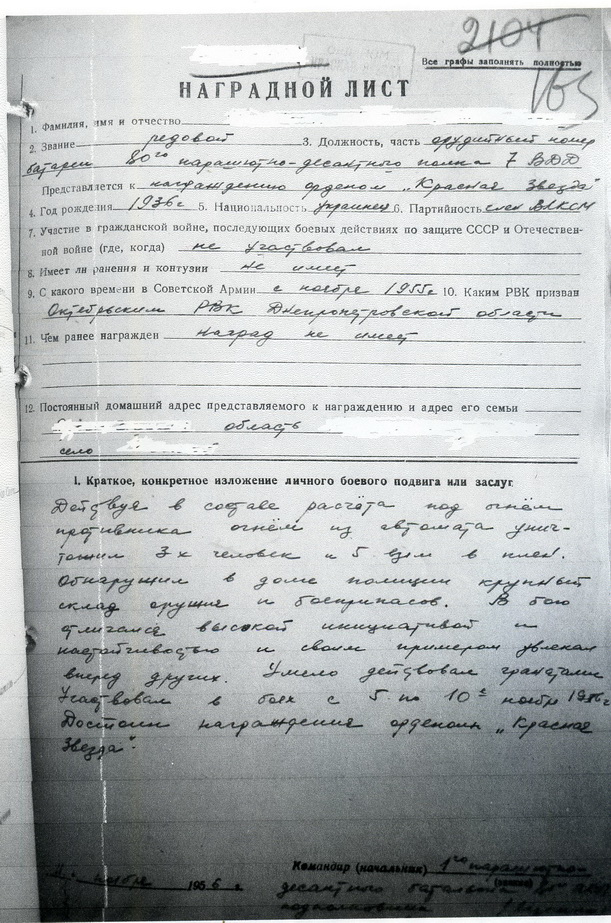 2104
Все графы заполнять полностью
165
НАГРАДНОЙ ЛИСТ
1. Фамилия, имя и отчество
2. Звание рядовой 3. Должность, часть орудийный номер
батареи 80го парашютно-десантного полка 7 ВДД
Представляется к награждению орденом „Красная Звезда“
4. Год рождения 1936г 5. Национальность украинец 6. Партийность член ВЛКСМ
7. Участие в гражданской войне, последующих боевых действиях по защите СССР и Отечествен-
ной войне (где, когда) не участвовал
8. Имеет ли ранения и контузии не имеет
9. С какого времени в Советской Армии с ноября 1955г 10. Каким РВК призван
Октябрьским РВК Днепропетровской области
11. Чем ранее награжден наград не имеет
12. Постоянный домашний адрес представляемого к награждению и адрес его семьи
область
село
I. Краткое, конкретное изложение личного боевого подвига или заслуг.
Действуя в составе расчёта под огнём
противника огнём из автомата унич-
тожил 3х человек и 5 взял в плен.
Обнаружил в доме полиции крупный
склад оружия и боеприпасов. В бою
отличался высокой инициативой и
настойчивостью и своим примером увлекал
вперед других. Умело действовал гранатами
Участвовал в боях с 5 по 10е ноября 1956г
Достоин награждения орденом „Красная
Звезда“.
Командир (начальник) 1го парашютно-
ноября 1956 г.
десантного батальона
подполковник